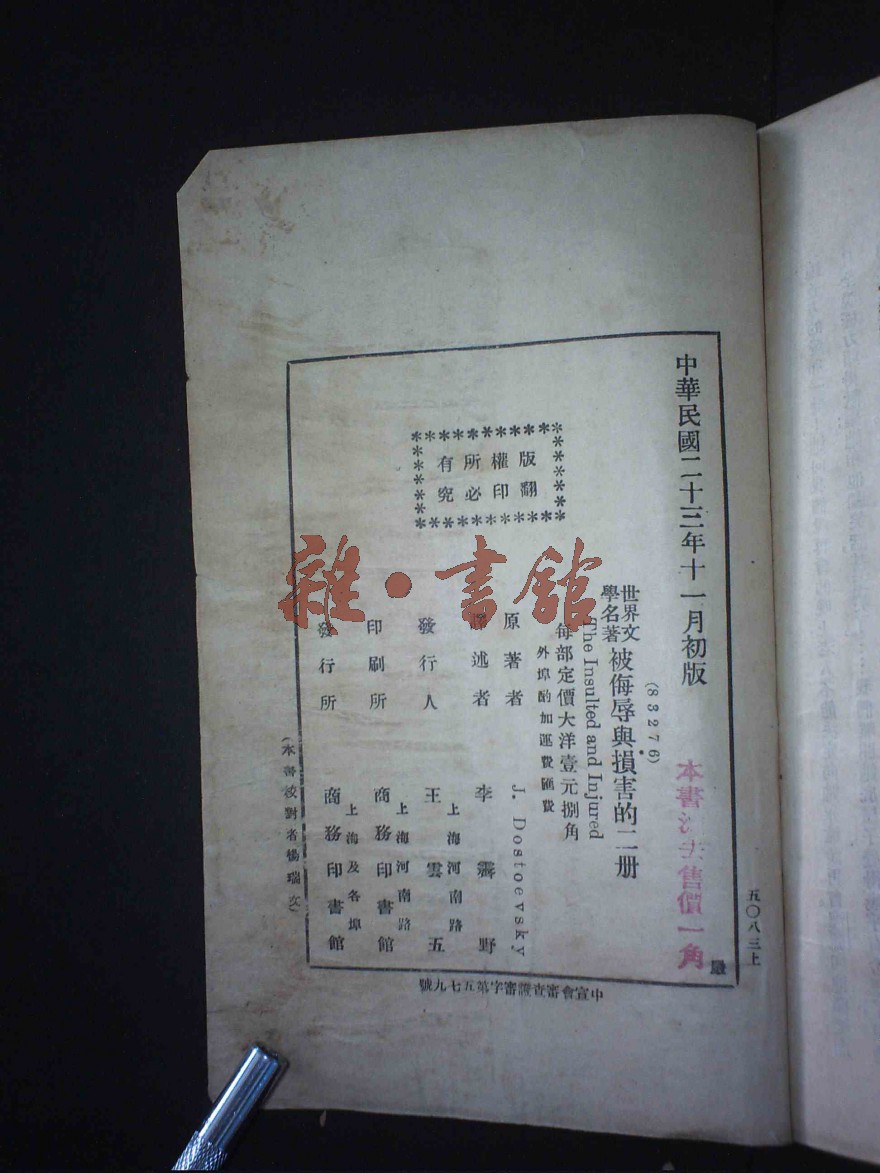 中華民國二十三年十一月初版
(83276)
世界文學名著
被侮辱與損害的二册
The Insulted and Injured
每部定價大洋壹元捌角
外埠酌加運費匯費
版權所有
翻印必究
原著者 J. Dostoevsky
譯述者 李霽野
發行人 王雲五
上海河南路
印刷所 商務印書館
上海河南路
發行所 商務印書館
上海及各埠
(本書校對者楊瑞文)
售價一角
五〇八三上
中宣會審查證審字第五七九號
雜·書館